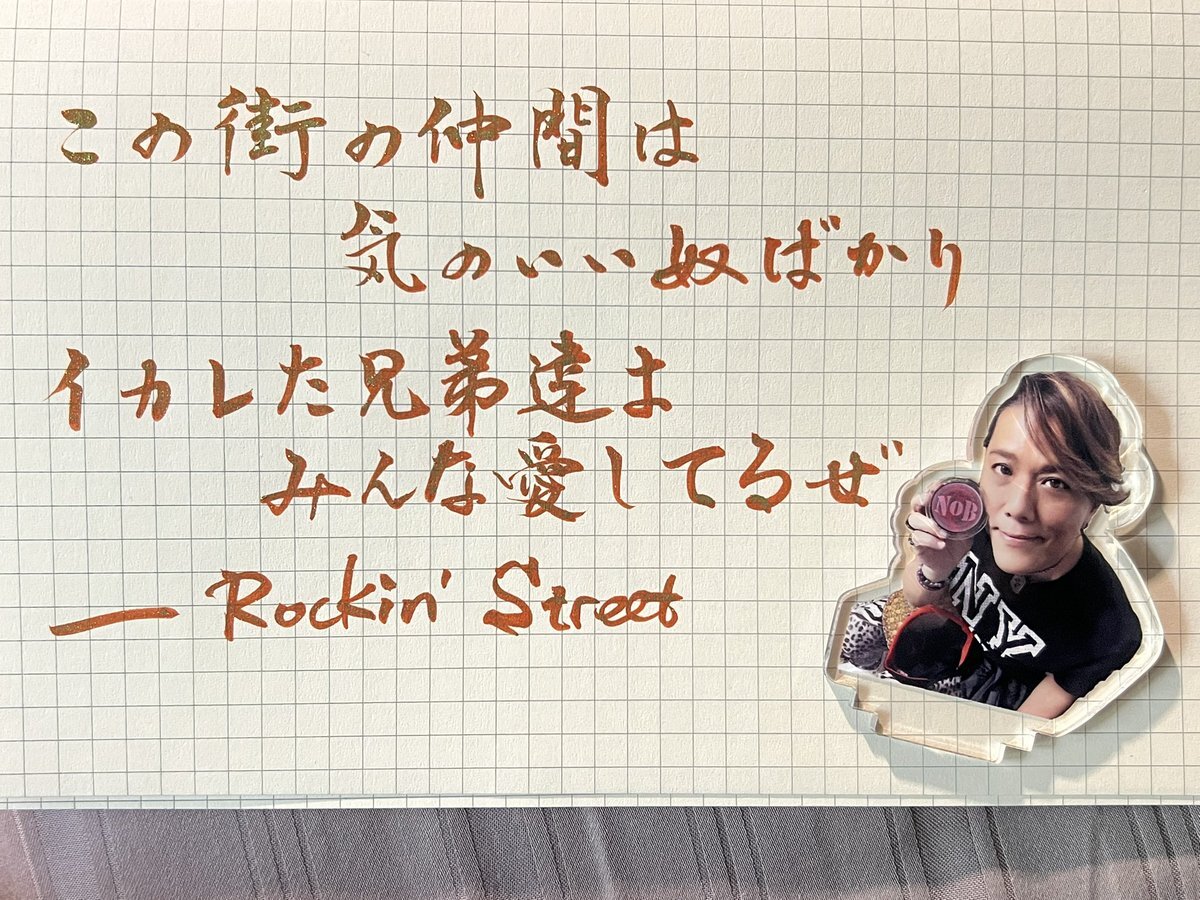 この街の仲間は
気のいい奴ばかり
イカレた兄弟達は
みんな愛してるぜ
— Rockin' Street
NoB
NY